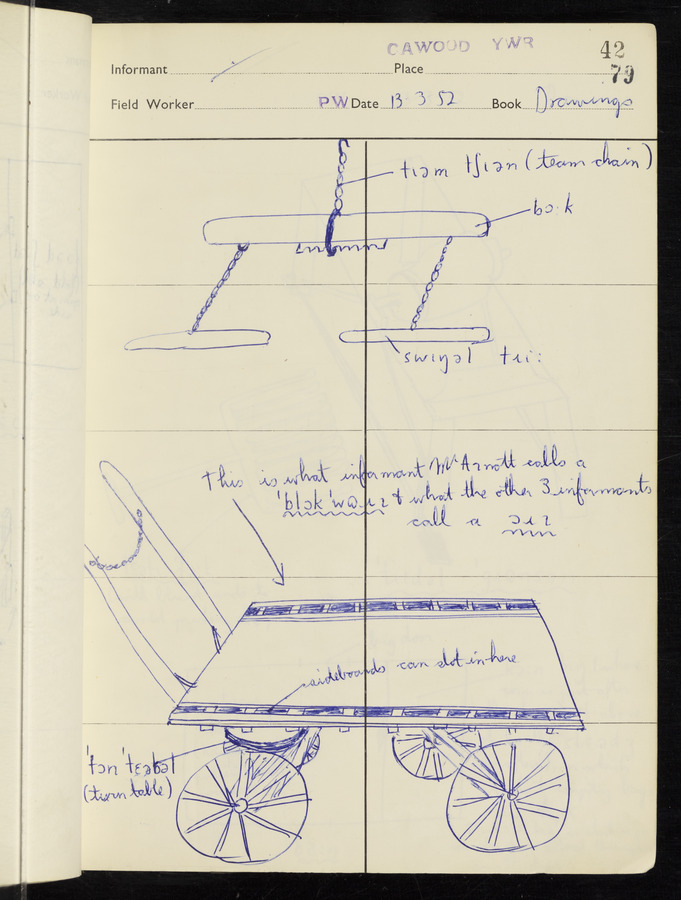 CAWOOD YWR
42
Informant
Place
79
Field Worker
PW Date 13 3 52
Book Drawings
tɪəm tʃɪən (team chain)
bɔːk
swiŋəl tɹiː
This is what informant Mr Arnott calls a
& what the other 3 informants
call a
sideboards can slot in here
'tɔn 'tɛəbəl
(turn table)